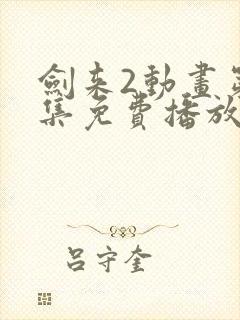 劍来2動畫第
集免費播放
吕守奎